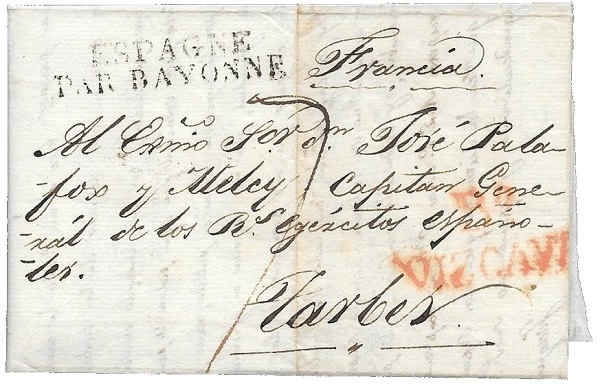 ESPAGNE
PAR BAYONNE
Francia.
Al Exmo. Sor. dn. José Pala-
-fox y Melcy Capitan Gene-
-rál de los Rs. Egércitos españo-
-les.
Tarbes.
VIZCAYA